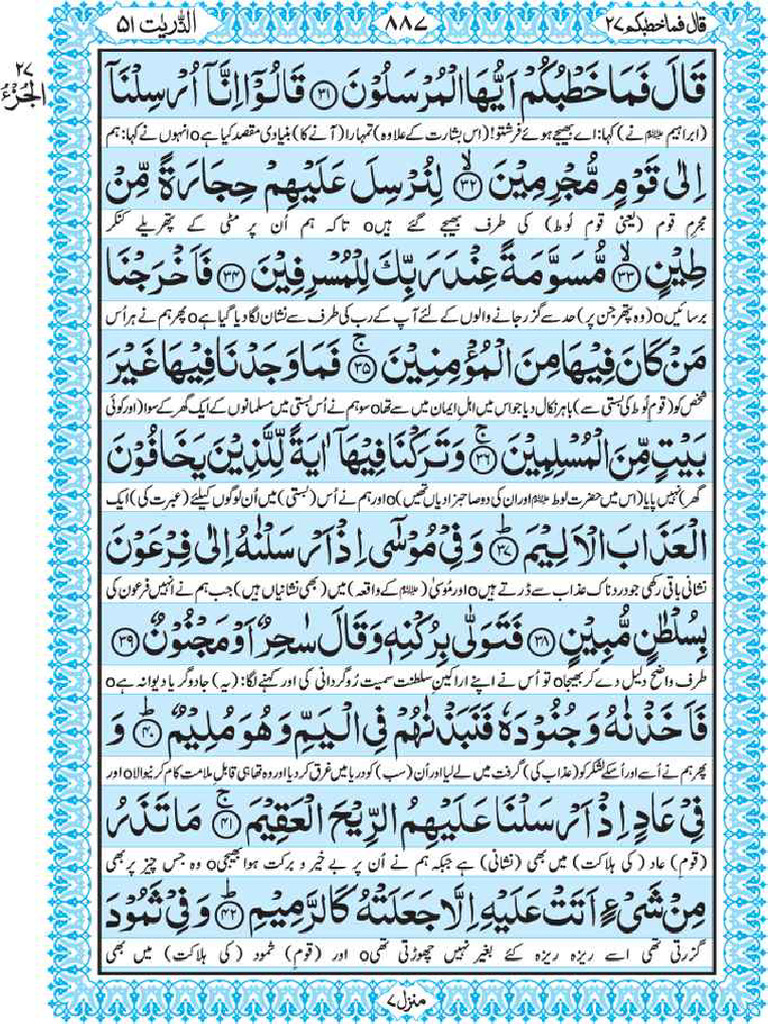 قال فماخطبکم ٢٧
٨٨٧
الذّٰریٰت ٥١
٢٧
الجزء
قَالَ فَمَا خَطْبُكُمْ اَیُّهَا الْمُرْسَلُوْنَ ﴿٣١﴾ قَالُوْۤا اِنَّاۤ اُرْسِلْنَاۤ
(ابراہیم ﷺ نے) کہا: اے بھیجے ہوئے فرشتو! (اس بشارت کے علاوہ) تمہارا (آنے کا) بنیادی مقصد کیا ہے o انہوں نے کہا: ہم
اِلٰى قَوْمٍ مُّجْرِمِیْنَ ۙ﴿٣٢﴾ لِنُرْسِلَ عَلَیْهِمْ حِجَارَةً مِّنْ
مجرم قوم (یعنی قومِ لُوط) کی طرف بھیجے گئے ہیں o تاکہ ہم اُن پر مٹی کے پتھریلے کنکر
طِیْنٍ ۙ﴿٣٣﴾ مُّسَوَّمَةً عِنْدَ رَبِّكَ لِلْمُسْرِفِیْنَ ﴿٣٤﴾ فَاَخْرَجْنَا
برسائیں o (وہ پتھر جن پر) حد سے گزر جانے والوں کے لئے آپ کے رب کی طرف سے نشان لگا دیا گیا ہے o پھر ہم نے ہر اُس
مَنْ كَانَ فِیْهَا مِنَ الْمُؤْمِنِیْنَ ۚ﴿٣٥﴾ فَمَا وَجَدْنَا فِیْهَا غَیْرَ
شخص کو (قومِ لُوط کی بستی سے) باہر نکال دیا جو اس میں اہلِ ایمان میں سے تھا o سو ہم نے اُس بستی میں مسلمانوں کے ایک گھر کے سوا (اور کوئی
بَیْتٍ مِّنَ الْمُسْلِمِیْنَ ۚ﴿٣٦﴾ وَتَرَكْنَا فِیْهَاۤ اٰیَةً لِّلَّذِیْنَ یَخَافُوْنَ
گھر) نہیں پایا (اس میں حضرت لوط ﷺ اور ان کی دو صاحبزادیاں تھیں) o اور ہم نے اُس (بستی) میں اُن لوگوں کیلئے (عبرت کی) ایک
الْعَذَابَ الْاَلِیْمَ ؕ﴿٣٧﴾ وَفِیْ مُوْسٰۤى اِذْ اَرْسَلْنٰهُ اِلٰى فِرْعَوْنَ
نشانی باقی رکھی جو دردناک عذاب سے ڈرتے ہیں o اور مُوسٰی (ﷺ کے واقعہ) میں (بھی نشانیاں ہیں) جب ہم نے انہیں فرعون کی
بِسُلْطٰنٍ مُّبِیْنٍ ﴿٣٨﴾ فَتَوَلّٰى بِرُكْنِهٖ وَقَالَ سٰحِرٌ اَوْ مَجْنُوْنٌ ﴿٣٩﴾
طرف واضح دلیل دے کر بھیجا o تو اُس نے اپنے اراکینِ سلطنت سمیت رُوگردانی کی اور کہنے لگا: (یہ) جادوگر یا دیوانہ ہے o
فَاَخَذْنٰهُ وَجُنُوْدَهٗ فَنَبَذْنٰهُمْ فِی الْیَمِّ وَهُوَ مُلِیْمٌ ؕ﴿٤٠﴾ وَ
پھر ہم نے اُسے اور اُسکے لشکر کو (عذاب کی) گرفت میں لے لیا اور اُن (سب) کو دریا میں غرق کر دیا اور وہ تھا ہی قابلِ ملامت کام کرنیوالا o اور
فِیْ عَادٍ اِذْ اَرْسَلْنَا عَلَیْهِمُ الرِّیْحَ الْعَقِیْمَ ۚ﴿٤١﴾ مَا تَذَرُ
(قومِ) عاد (کی ہلاکت) میں بھی (نشانی) ہے جبکہ ہم نے اُن پر بے خیر و برکت ہوا بھیجی o وہ جس چیز پر بھی
مِنْ شَیْءٍ اَتَتْ عَلَیْهِ اِلَّا جَعَلَتْهُ كَالرَّمِیْمِ ؕ﴿٤٢﴾ وَفِیْ ثَمُوْدَ
گزرتی تھی اسے ریزہ ریزہ کئے بغیر نہیں چھوڑتی تھی o اور (قومِ) ثمود (کی ہلاکت) میں بھی
منزل ٧